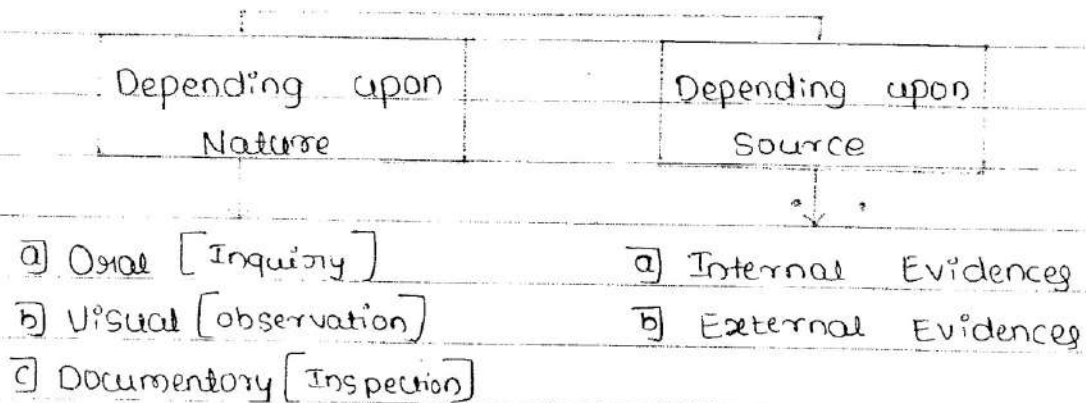 Depending upon
Nature
Depending upon
Source
a] Oral [Inquiry]
b] Visual [observation]
c] Documentory [Inspection]
a] Internal Evidences
b] External Evidences